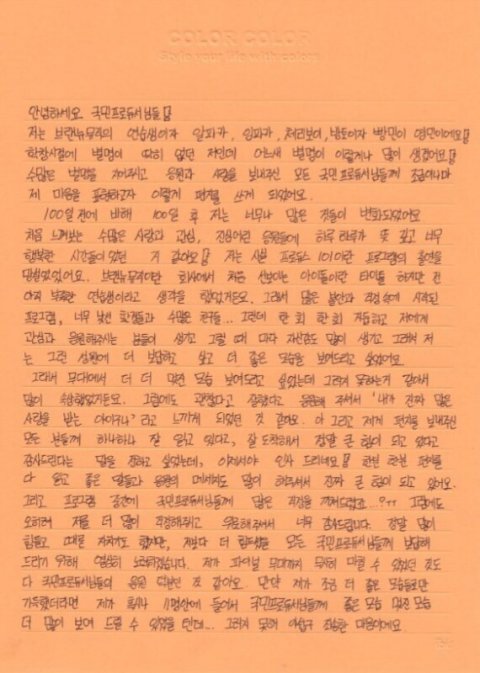 COLOR COLOR
Style your life with colors
안녕하세요 국민프로듀서님들
저는 브랜뉴뮤직의 연습생이자 임파카, 체리보이, 남돌이자 영민이에요
학창시절에 별명이 딱히 없던 저인데 어느새 별명이 이렇게나 많이 생겼어요
수많은 별명을 지어주시고 응원과 사랑을 보내주신 모든 국민프로듀서님들께 조금이나마
제 마음을 표현하고자 이렇게 편지를 쓰게 되었어요.
100일 전에 비해 100일 후 저는 너무나 많은 것들이 변화되었어요
처음 느껴보는 수많은 사랑과 관심, 진심어린 응원들에 하루하루가 뜻 깊고 너무
행복한 시간들이었던 거 같아요 저는 사실 프로듀스 101이란 프로그램의 출연을
망설였었어요. 브랜뉴뮤직이란 회사에서 처음 선보이는 아이돌이란 타이틀 하지만 전
아직 부족한 연습생이라고 생각을 했었거든요. 그래서 많은 불안과 걱정 속에 시작된
프로그램, 너무 낯선 환경들과 수많은 친구들.. 그런데 한 회 한 회 거듭하고 저에게
관심과 응원해주시는 분들이 생기고 그럴 때 마다 자신감도 많이 생기고 그래서 저
는 그런 성원에 더 더 보답하고 싶고 더 좋은 모습을 보여드리고 싶었어요.
그래서 무대에서 더 더 멋진 모습 보여드리고 싶었는데 그러지 못하는거 같아서
많이 속상했었거든요. 그럼에도 괜찮다고 잘했다고 응원해 주셔서 '내가 진짜 많은
사랑을 받는 아이구나' 라고 느끼게 되었던 것 같아요. 아 그리고 저에게 편지를 보내주신
모든 분들께 하나하나 잘 읽고 있다고, 잘 도착해서 정말 큰 힘이 되고 있다고
감사드린다는 말을 전하고 싶었는데, 이제서야 인사 드리네요 한분 한분 편지를
다 읽고 좋은 말들과 응원의 메세지도 많이 해주셔서 진짜 큰 힘이 되고 있어요.
그리고 프로그램 중간에 국민프로듀서님들께 많은 걱정을 끼쳐드렸죠...?ㅠㅠ 그럼에도
오히려 저를 더 많이 걱정해주시고 응원해주셔서 너무 감사드립니다. 정말 많이
힘들고 때론 지치기도 했지만, 저보다 더 힘드셨을 모든 국민프로듀서님들께 보답해
드리기 위해 열심히 노력하겠습니다. 제가 파이널 무대까지 무사히 마칠 수 있었던 것도
다 국민프로듀서님들의 응원 덕분인 것 같아요. 만약 제가 조금 더 좋은 모습들로만
가득했더라면 제가 혹시나 11명안에 들어서 국민프로듀서님들께 좋은 모습 멋진 모습
더 많이 보여 드릴 수 있었을 텐데... 그러지 못해 아쉽구 죄송한 마음이에요.